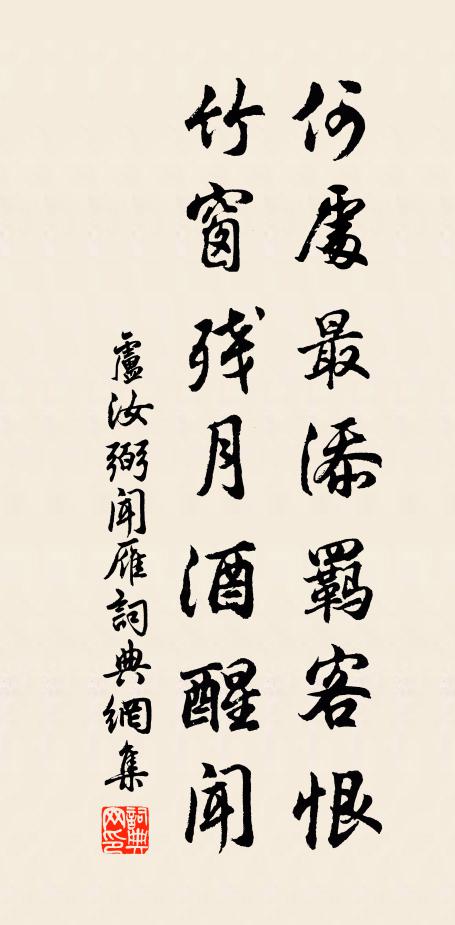 何處最添羈客恨
竹窗残月酒醒聞
盧汝弼聞雁詞典網集
詞典網印